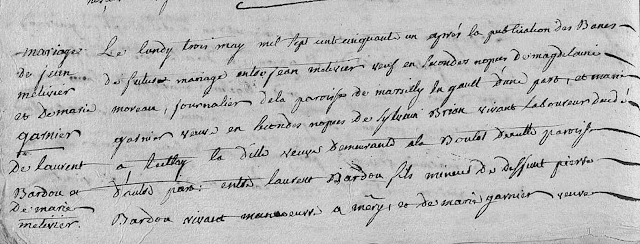 mariage
de jean
melivier
et de marie
garnier
et
de laurent
Bardou et
De marie
melivier.
Le lundy trois may mil sept cent cinquant un apres la publication des Banes
de future mariage entre jean melivier veuf en secondes nopces de magdelaine
moreau, journalier de la paroisse de marsilly la gault dune part, et marie
garnier veuve en secondes nopces de Silvain Brion vivant Laboureur
a la ditte veuve demeurante ala Boulot paroisse
d'autre part: entre laurent Bardou fils mineur de deffunt pierre
Bardou vivant manoeuvre a mery, et de marie garnier veuve